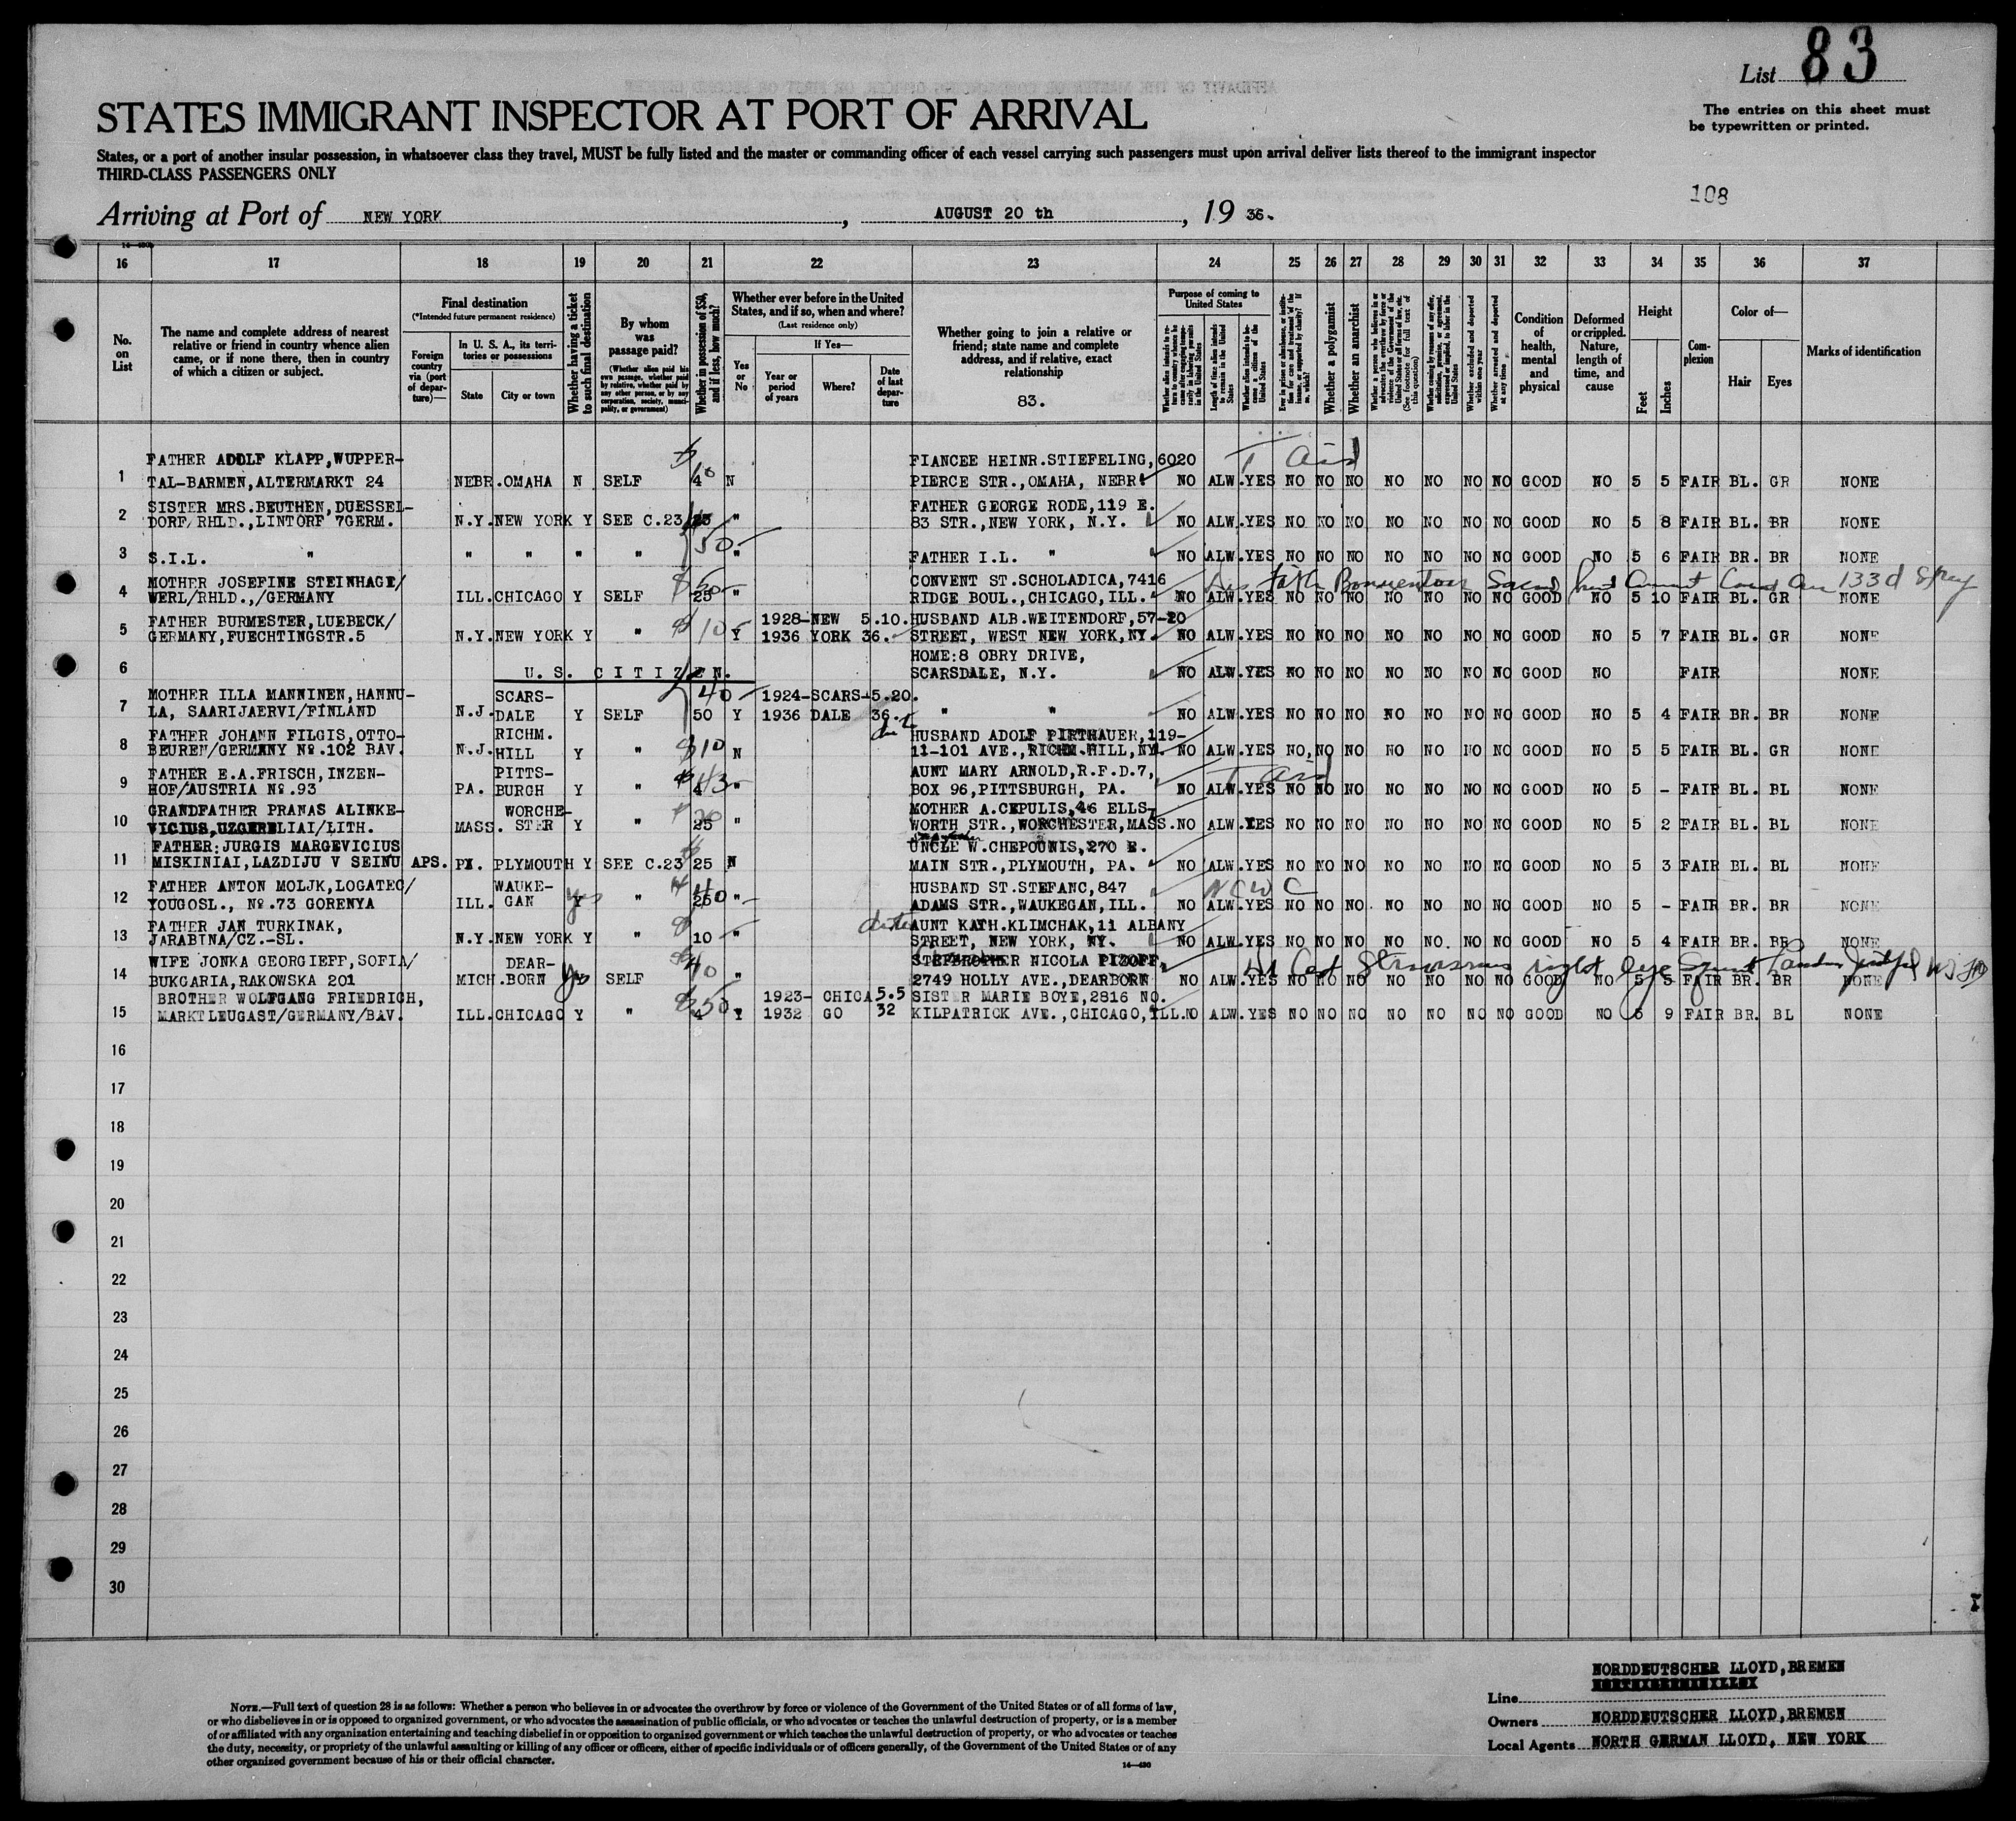 List 83
STATES IMMIGRANT INSPECTOR AT PORT OF ARRIVAL
The entries on this sheet must
be typewritten or printed.
States, or a port of another insular possession, in whatsoever class they travel, MUST be fully listed and the master or commanding officer of each vessel carrying such passengers must upon arrival deliver lists thereof to the immigrant inspector
THIRD-CLASS PASSENGERS ONLY
108
Arriving at Port of NEW YORK, AUGUST 20 th, 19 36.
16 17 18 19 20 21 22 23 24 25 26 27 28 29 30 31 32 33 34 35 36 37
No. on List
The name and complete address of nearest relative or friend in country whence alien came, or if none there, then in country of which a citizen or subject.
Final destination
(*Intended future permanent residence)
Foreign country via (port of departure)—
In U. S. A., its territories or possessions
State
City or town
Whether having a ticket to such final destination
By whom was passage paid?
(Whether alien paid his own passage, whether paid by relative, whether paid by any other person, or by any corporation, society, municipality, or government)
Whether in possession of $50, and if less, how much?
Whether ever before in the United States, and if so, when and where?
(Last residence only)
Yes or No
If Yes—
Year or period of years
Where?
Date of last departure
Whether going to join a relative or friend; state name and complete address, and if relative, exact relationship
83.
Purpose of coming to United States
Whether a polygamist
Whether an anarchist
Condition of health, mental and physical
Deformed or crippled. Nature, length of time, and cause
Height
Feet
Inches
Complexion
Color of—
Hair
Eyes
Marks of identification
FATHER ADOLF KLAPP,WUPPER- FIANCEE HEINR.STIEFELING,6020 T Aid
1 TAL-BARMEN,ALTERMARKT 24 NEBR.OMAHA N SELF 4 N PIERCE STR.,OMAHA, NEBR. NO ALW.YES NO NO NO NO NO NO NO GOOD NO 5 5 FAIR BL. GR NONE
SISTER MRS.BEUTHEN,DUESSEL- FATHER GEORGE RODE,119 E.
2 DORF/RHLD.,LINTORF 7GERM. N.Y.NEW YORK Y SEE C.23 25 " 83 STR.,NEW YORK, N.Y. NO ALW.YES NO NO NO NO NO NO NO GOOD NO 5 8 FAIR BL. BR NONE
3 S.I.L. " " " " " 50 " FATHER I.L. " NO ALW.YES NO NO NO NO NO NO NO GOOD NO 5 6 FAIR BR. BR NONE
MOTHER JOSEFINE STEINHAGE/ CONVENT ST.SCHOLADICA,7416
4 WERL/RHLD.,/GERMANY ILL.CHICAGO Y SELF 25 " RIDGE BOUL.,CHICAGO,ILL. NO ALW.YES NO NO NO NO NO NO NO GOOD NO 5 10 FAIR BL. GR NONE
FATHER BURMESTER,LUEBECK/ 1928-NEW 5.10. HUSBAND ALB.WEITENDORF,57-20
5 GERMANY,FUECHTINGSTR.5 N.Y.NEW YORK Y " $10 Y 1936 YORK 36. STREET, WEST NEW YORK,NY. NO ALW.YES NO NO NO NO NO NO NO GOOD NO 5 7 FAIR BL. GR NONE
HOME:8 OBRY DRIVE,
6 U. S. C I T I Z E N. SCARSDALE, N.Y. NO ALW.YES NO NO NO NO NO NO NO GOOD NO FAIR NONE
MOTHER ILLA MANNINEN,HANNU- SCARS- 40 1924-SCARS-5.20.
7 LA, SAARIJAERVI/FINLAND N.J. DALE Y SELF 50 Y 1936 DALE 36. " " NO ALW.YES NO NO NO NO NO NO NO GOOD NO 5 4 FAIR BR. BR NONE
FATHER JOHANN FILGIS,OTTO- RICHM. HUSBAND ADOLF PIRTHAUER,119-
8 BEUREN/GERMANY No.102 BAV. N.J. HILL Y " $10 N 11-101 AVE.,RICHM.HILL,NY. NO ALW.YES NO NO NO NO NO NO NO GOOD NO 5 5 FAIR BL. GR NONE
FATHER E.A.FRISCH,INZEN- PITTS- AUNT MARY ARNOLD,R.F.D.7, T Aid
9 HOF/AUSTRIA No.93 PA. BURGH Y " 4 " BOX 96,PITTSBURGH, PA. NO ALW.YES NO NO NO NO NO NO NO GOOD NO 5 - FAIR BL. BL NONE
GRANDFATHER PRANAS ALINKE- WORCHE- MOTHER A.CEPULIS,46 ELLS-
10 VICIUS,UZGERELIAI/LITH. MASS. STER Y " 25 " WORTH STR.,WORCHESTER,MASS. NO ALW.YES NO NO NO NO NO NO NO GOOD NO 5 2 FAIR BL. BL NONE
FATHER:JURGIS MARGEVICIUS UNCLE W.CHEPOUNIS,270 E.
11 MISKINIAI,LAZDIJU V SEINU APS. PA. PLYMOUTH Y SEE C.23 25 N MAIN STR.,PLYMOUTH, PA. NO ALW.YES NO NO NO NO NO NO NO GOOD NO 5 3 FAIR BL. BL NONE
FATHER ANTON MOLJK,LOGATEC/ WAUKE- HUSBAND ST.STEFANC,847 NCWC
12 YOUGOSL., No.73 GORENYA ILL. GAN yes Y " 250 " ADAMS STR.,WAUKEGAN,ILL. NO ALW.YES NO NO NO NO NO NO NO GOOD NO 5 - FAIR BR. BR NONE
FATHER JAN TURKINAK, AUNT KATH.KLIMCHAK,11 ALBANY
13 JARABINA/CZ.-SL. N.Y.NEW YORK Y " 10 " STREET, NEW YORK, NY. NO ALW.YES NO NO NO NO NO NO NO GOOD NO 5 4 FAIR BR. BR NONE
WIFE JONKA GEORGIEFF,SOFIA/ DEAR- STEPBROTHER NICOLA PIZOFF,
14 BUKGARIA,RAKOWSKA 201 MICH.BORN Y SELF 40 " 2749 HOLLY AVE.,DEARBORN NO ALW.YES NO NO NO NO NO NO NO GOOD NO 5 5 FAIR BR. BR NONE
BROTHER WOLFGANG FRIEDRICH, 1923- CHICA 5.5 SISTER MARIE BOYE,2816 NO.
15 MARKTLEUGAST/GERMANY/BAV. ILL.CHICAGO Y " 4 Y 1932 GO 32 KILPATRICK AVE.,CHICAGO,ILL. NO ALW.YES NO NO NO NO NO NO NO GOOD NO 5 9 FAIR BR. BL NONE
16
17
18
19
20
21
22
23
24
25
26
27
28
29
30
NOTE.—Full text of question 28 is as follows: Whether a person who believes in or advocates the overthrow by force or violence of the Government of the United States or of all forms of law,
or who disbelieves in or is opposed to organized government, or who advocates the assassination of public officials, or who advocates or teaches the unlawful destruction of property, or is a member
of or affiliated with any organization entertaining and teaching disbelief in or opposition to organized government or which teaches the unlawful destruction of property, or who advocates or teaches
the duty, necessity, or propriety of the unlawful assaulting or killing of any officer or officers, either of specific individuals or of officers generally, of the Government of the United States or of any
other organized government because of his or their official character.
14—430
NORDDEUTSCHER LLOYD,BREMEN
Line
Owners NORDDEUTSCHER LLOYD,BREMEN
Local Agents NORTH GERMAN LLOYD, NEW YORK